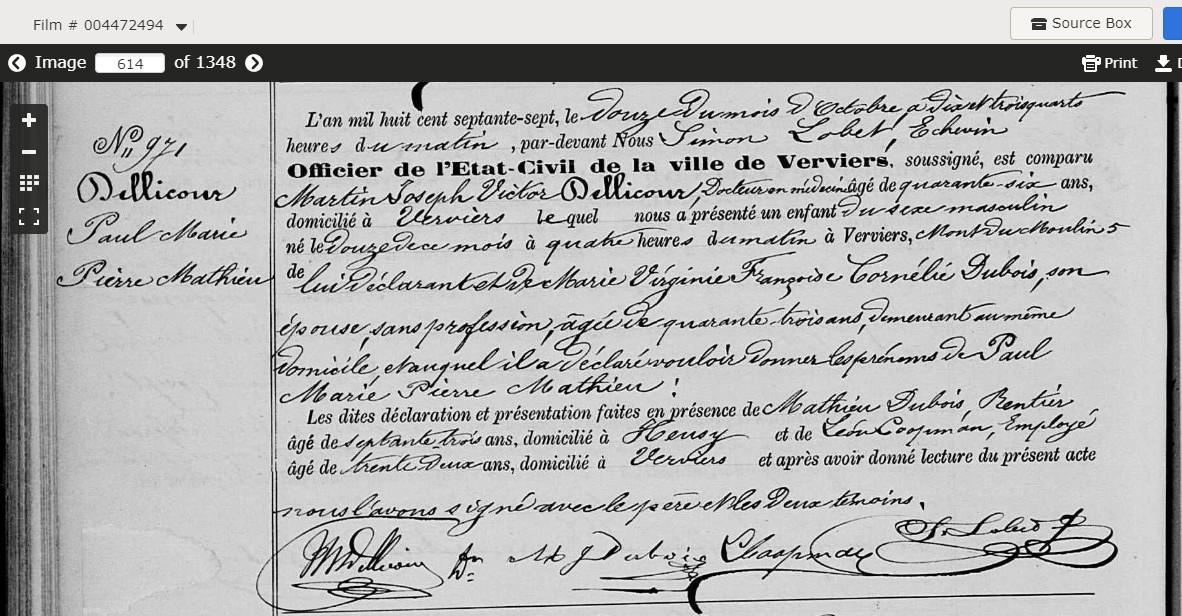 Film # 004472494
Source Box
Image 614 of 1348
Print
L'an mil huit cent septante-sept, le douze du mois d'Octobre, à dix et trois quarts
heures du matin, par-devant Nous Simon Lobet, Echevin
Officier de l'Etat-Civil de la ville de Verviers, soussigné, est comparu
Martin Joseph Victor Dellicour, Docteur en médecine âgé de quarante-six ans,
domicilié à Verviers lequel nous a présenté un enfant du sexe masculin
né le douze de ce mois à quatre heures du matin à Verviers, Mont du Moulin 5
de lui déclarant et de Marie Virginie Françoise Cornélie Dubois, son
épouse, sans profession, âgée de quarante-trois ans, demeurant au même
domicile, et auquel il a déclaré vouloir donner les prénoms de Paul
Marie Pierre Mathieu.
Les dites déclaration et présentation faites en présence de Mathieu Dubois, Rentier,
âgé de septante trois ans, domicilié à Heusy et de Léon Coopman, Employé
âgé de trente deux ans, domicilié à Verviers et après avoir donné lecture du présent acte
nous l'avons signé avec le père et les deux témoins.
Nº 971
Dellicour
Paul Marie
Pierre Mathieu
Dellicour Dubois S. Lobet